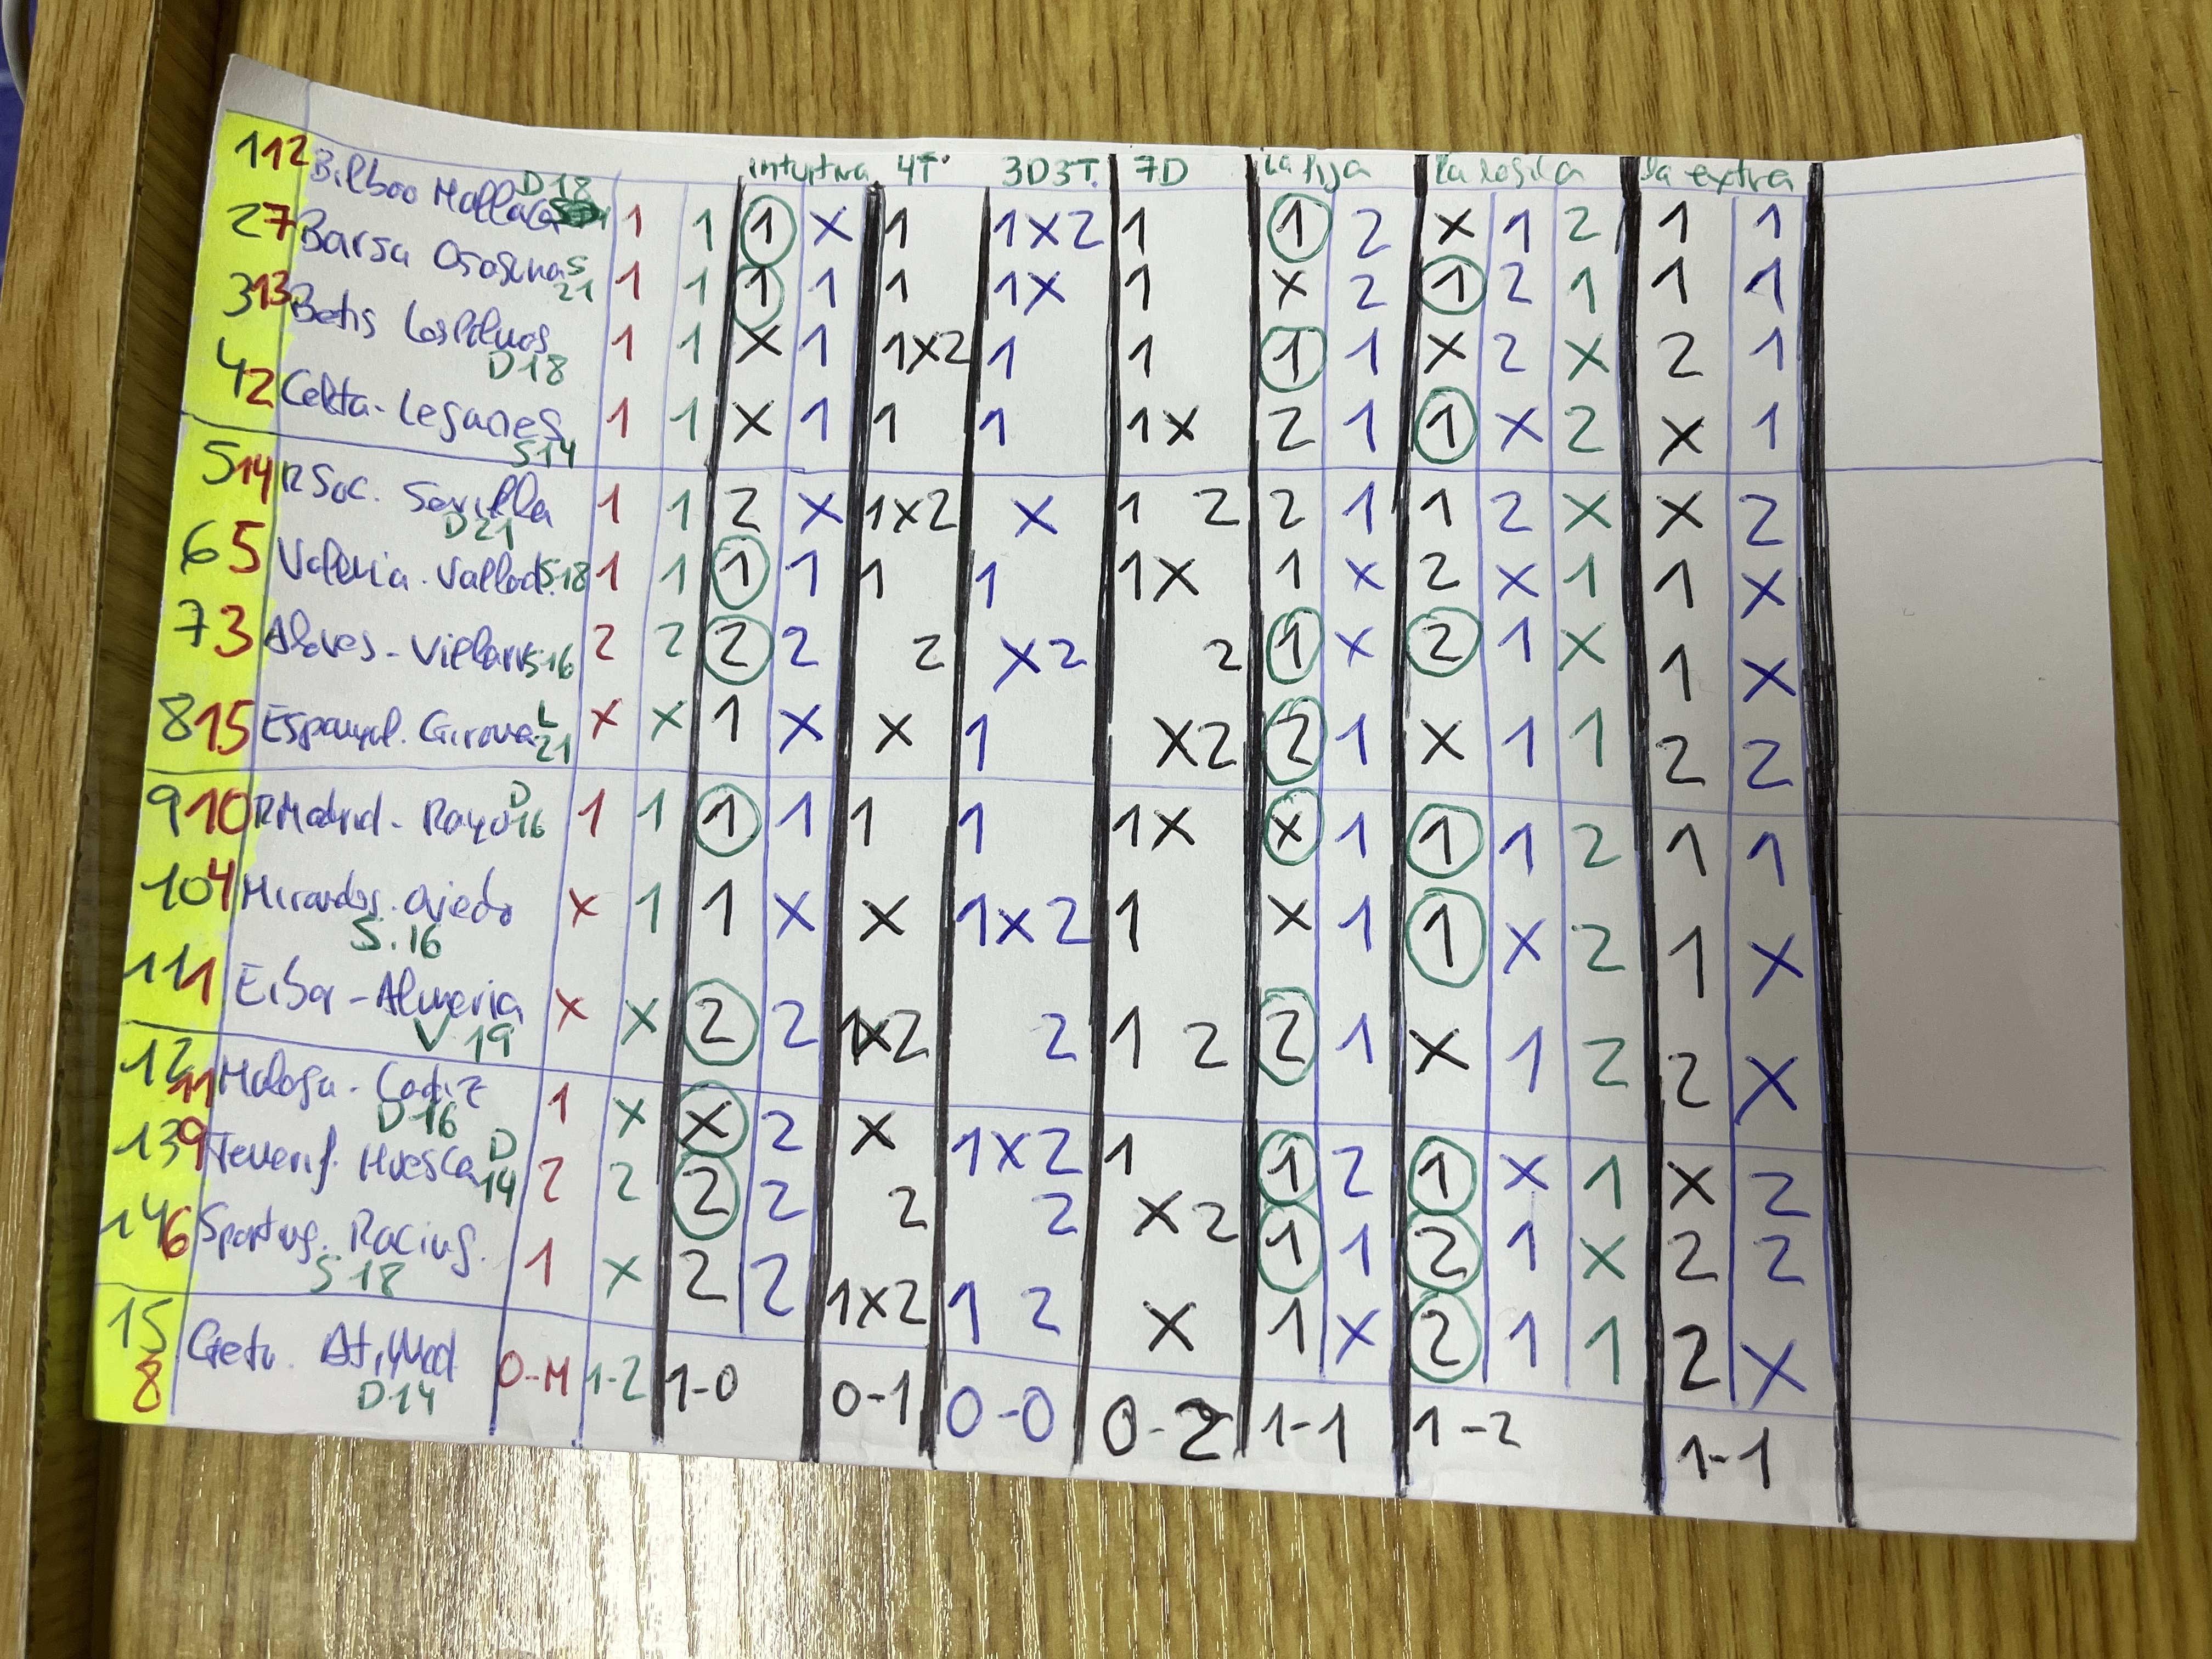 intuitiva 4T 3D3T. 7D La fija La logica La extra
1 12 Bilbao Mallaca D18 1 1 1 X 1 1X2 1 1 2 X 1 2 1 1
2 7 Barsa Ososuna S 21 1 1 1 1 1 1X 1 X 2 1 2 1 1 1
3 13 Betis Las Palmas D18 1 1 X 1 1X2 1 1 1 1 X 2 X 2 1
4 2 Celta - Leganes S14 1 1 X 1 1 1 1X 2 1 1 X 2 X 1
5 14 R Soc. Sevilla D21 1 1 2 X 1X2 X 1 2 2 1 1 2 X X 2
6 5 Valencia - Vallad. S18 1 1 1 1 1 1 1X 1 X 2 X 1 1 X
7 3 Alaves - Villarr S16 2 2 2 2 2 X2 2 1 X 2 1 X 1 X
8 15 Espanyol. Girona L 21 X X 1 X X 1 X2 2 1 X 1 1 2 2
9 10 R Madrid - Rayo D 16 1 1 1 1 1 1 1X X 1 1 1 2 1 1
10 4 Mirandes. Oviedo S.16 X 1 1 X X 1X2 1 X 1 1 X 2 1 X
11 1 Eibar - Almeria V 19 X X 2 2 1X2 2 1 2 2 1 X 1 2 2 X
12 11 Malaga - Cadiz D16 1 X X 2 X 1X2 1 1 2 1 X 1 X 2
13 9 Tenerif. Huesca D 14 2 2 2 2 2 2 X2 1 1 2 1 X 2 2
14 6 Sporting. Racing. S 18 1 X 2 2 1X2 1 2 X 1 X 2 1 1 2 X
15 8 Getv. At, Mad D14 0-M 1-2 1-0 0-1 0-0 0-2 1-1 1-2 1-1